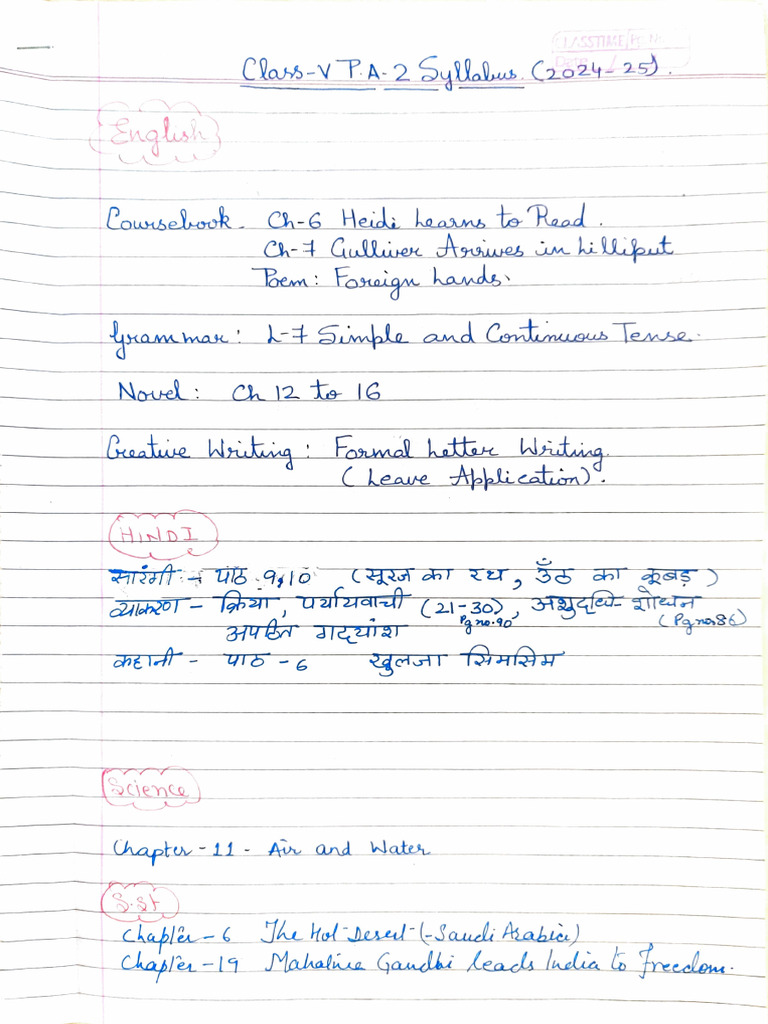 CLASSTIME Pg. No.
Date / /
Class-V P.A-2 Syllabus. (2024-25).
English
Coursebook. Ch-6 Heidi Learns to Read.
Ch-7 Gulliver Arrives in Lilliput
Poem: Foreign Lands.
Grammar: L-7 Simple and Continuous Tense.
Novel: Ch 12 to 16
Creative Writing: Formal Letter Writing.
(Leave Application).
HINDI
सारंगी - पाठ 9,10 (सूरज का रथ, ऊँठ का कूबड़)
व्याकरण - क्रिया, पर्यायवाची (21-30), अशुद्धि-शोधन
Pg no.90 (Pg no.86)
अपठित गद्यांश
कहानी - पाठ - 6 खुलजा सिमसिम
Science
Chapter-11- Air and Water
S.St
Chapter-6 The Hot Desert (-Saudi Arabia)
Chapter-19 Mahatma Gandhi leads India to Freedom.